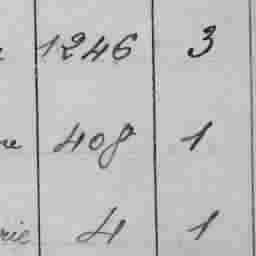 1246 3
re 408 1
rie 4 1